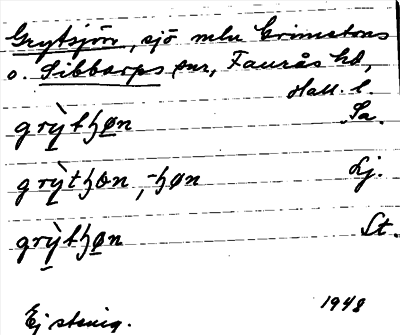 Grytsjön, sjö mlu Krimstons
o. Sibbarps snr, Faurås hd,
Hall. l.
grỳtꜧøn Sa.
grỳtꜧɷn, -ꜧøn Lj.
grỳtꜧøn St.
Ej stenig. 1948